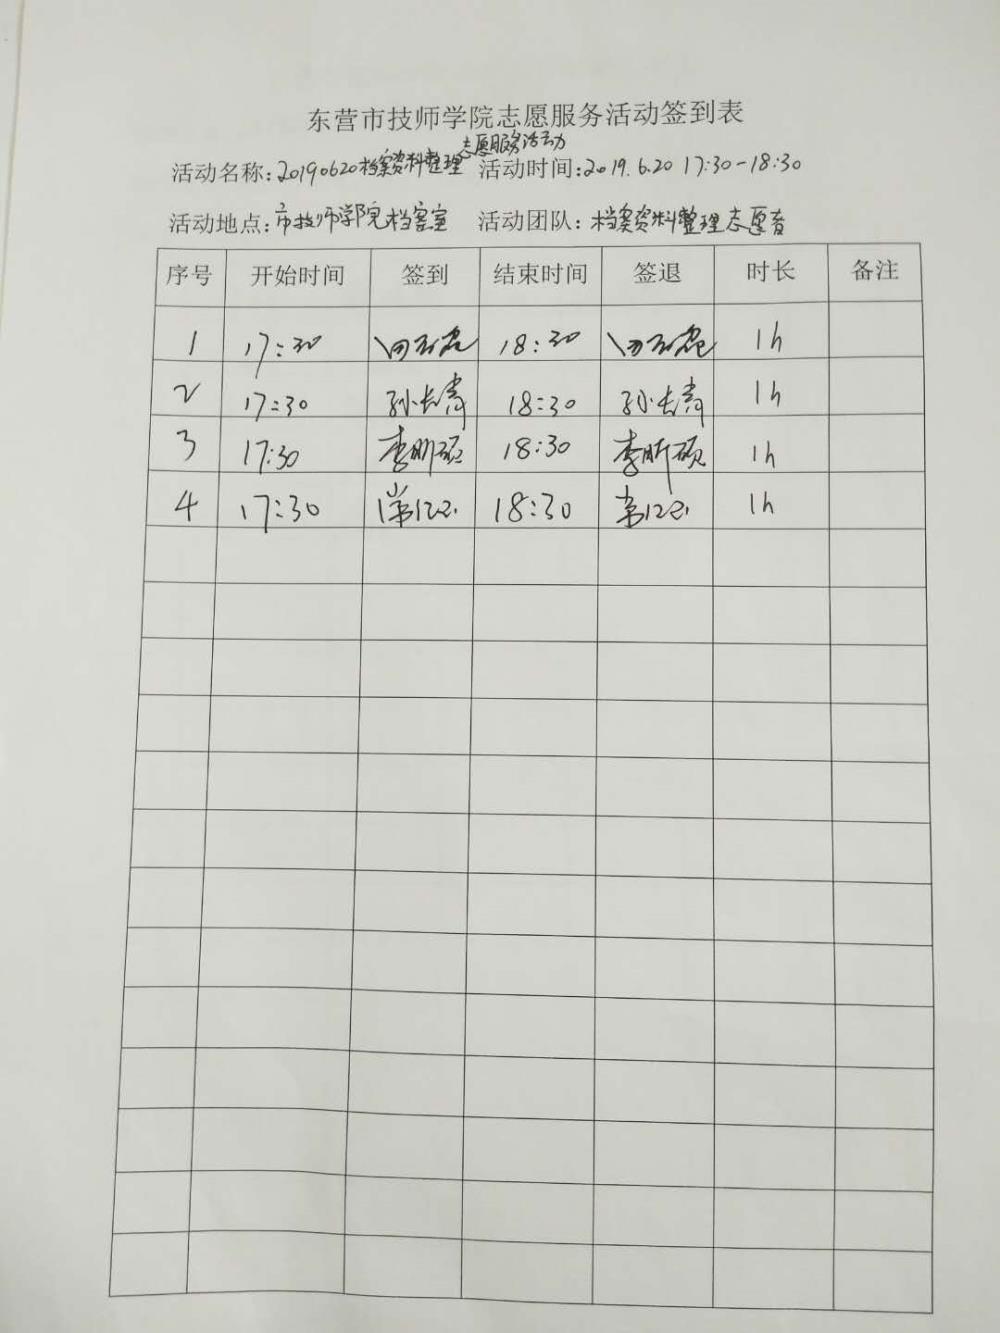 东营市技师学院志愿服务活动签到表
活动名称:20190620档案资料整理志愿服务活动 活动时间:2019.6.20 17:30-18:30
活动地点:市技师学院档案室 活动团队:档案资料整理志愿者
序号 开始时间 签到 结束时间 签退 时长 备注
1 17:30 18:30 1h
2 17:30 孙长青 18:30 孙长青 1h
3 17:30 李昕硕 18:30 李昕硕 1h
4 17:30 18:30 1h